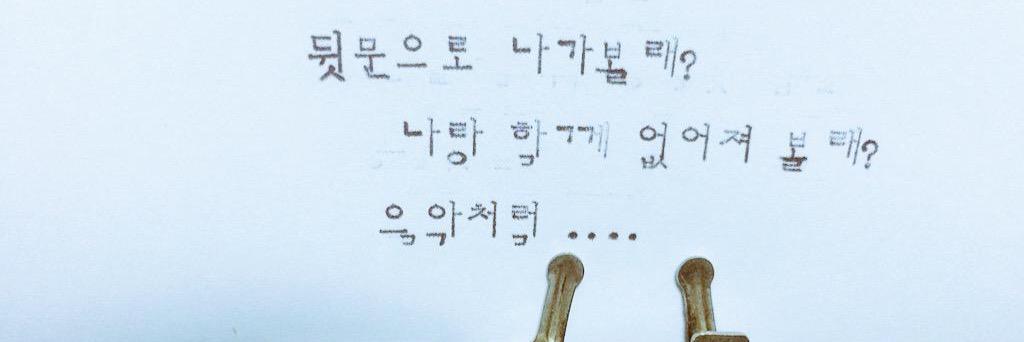 뒷문으로 나가볼래?
나랑 함께 없어져 볼래?
음악처럼 ....